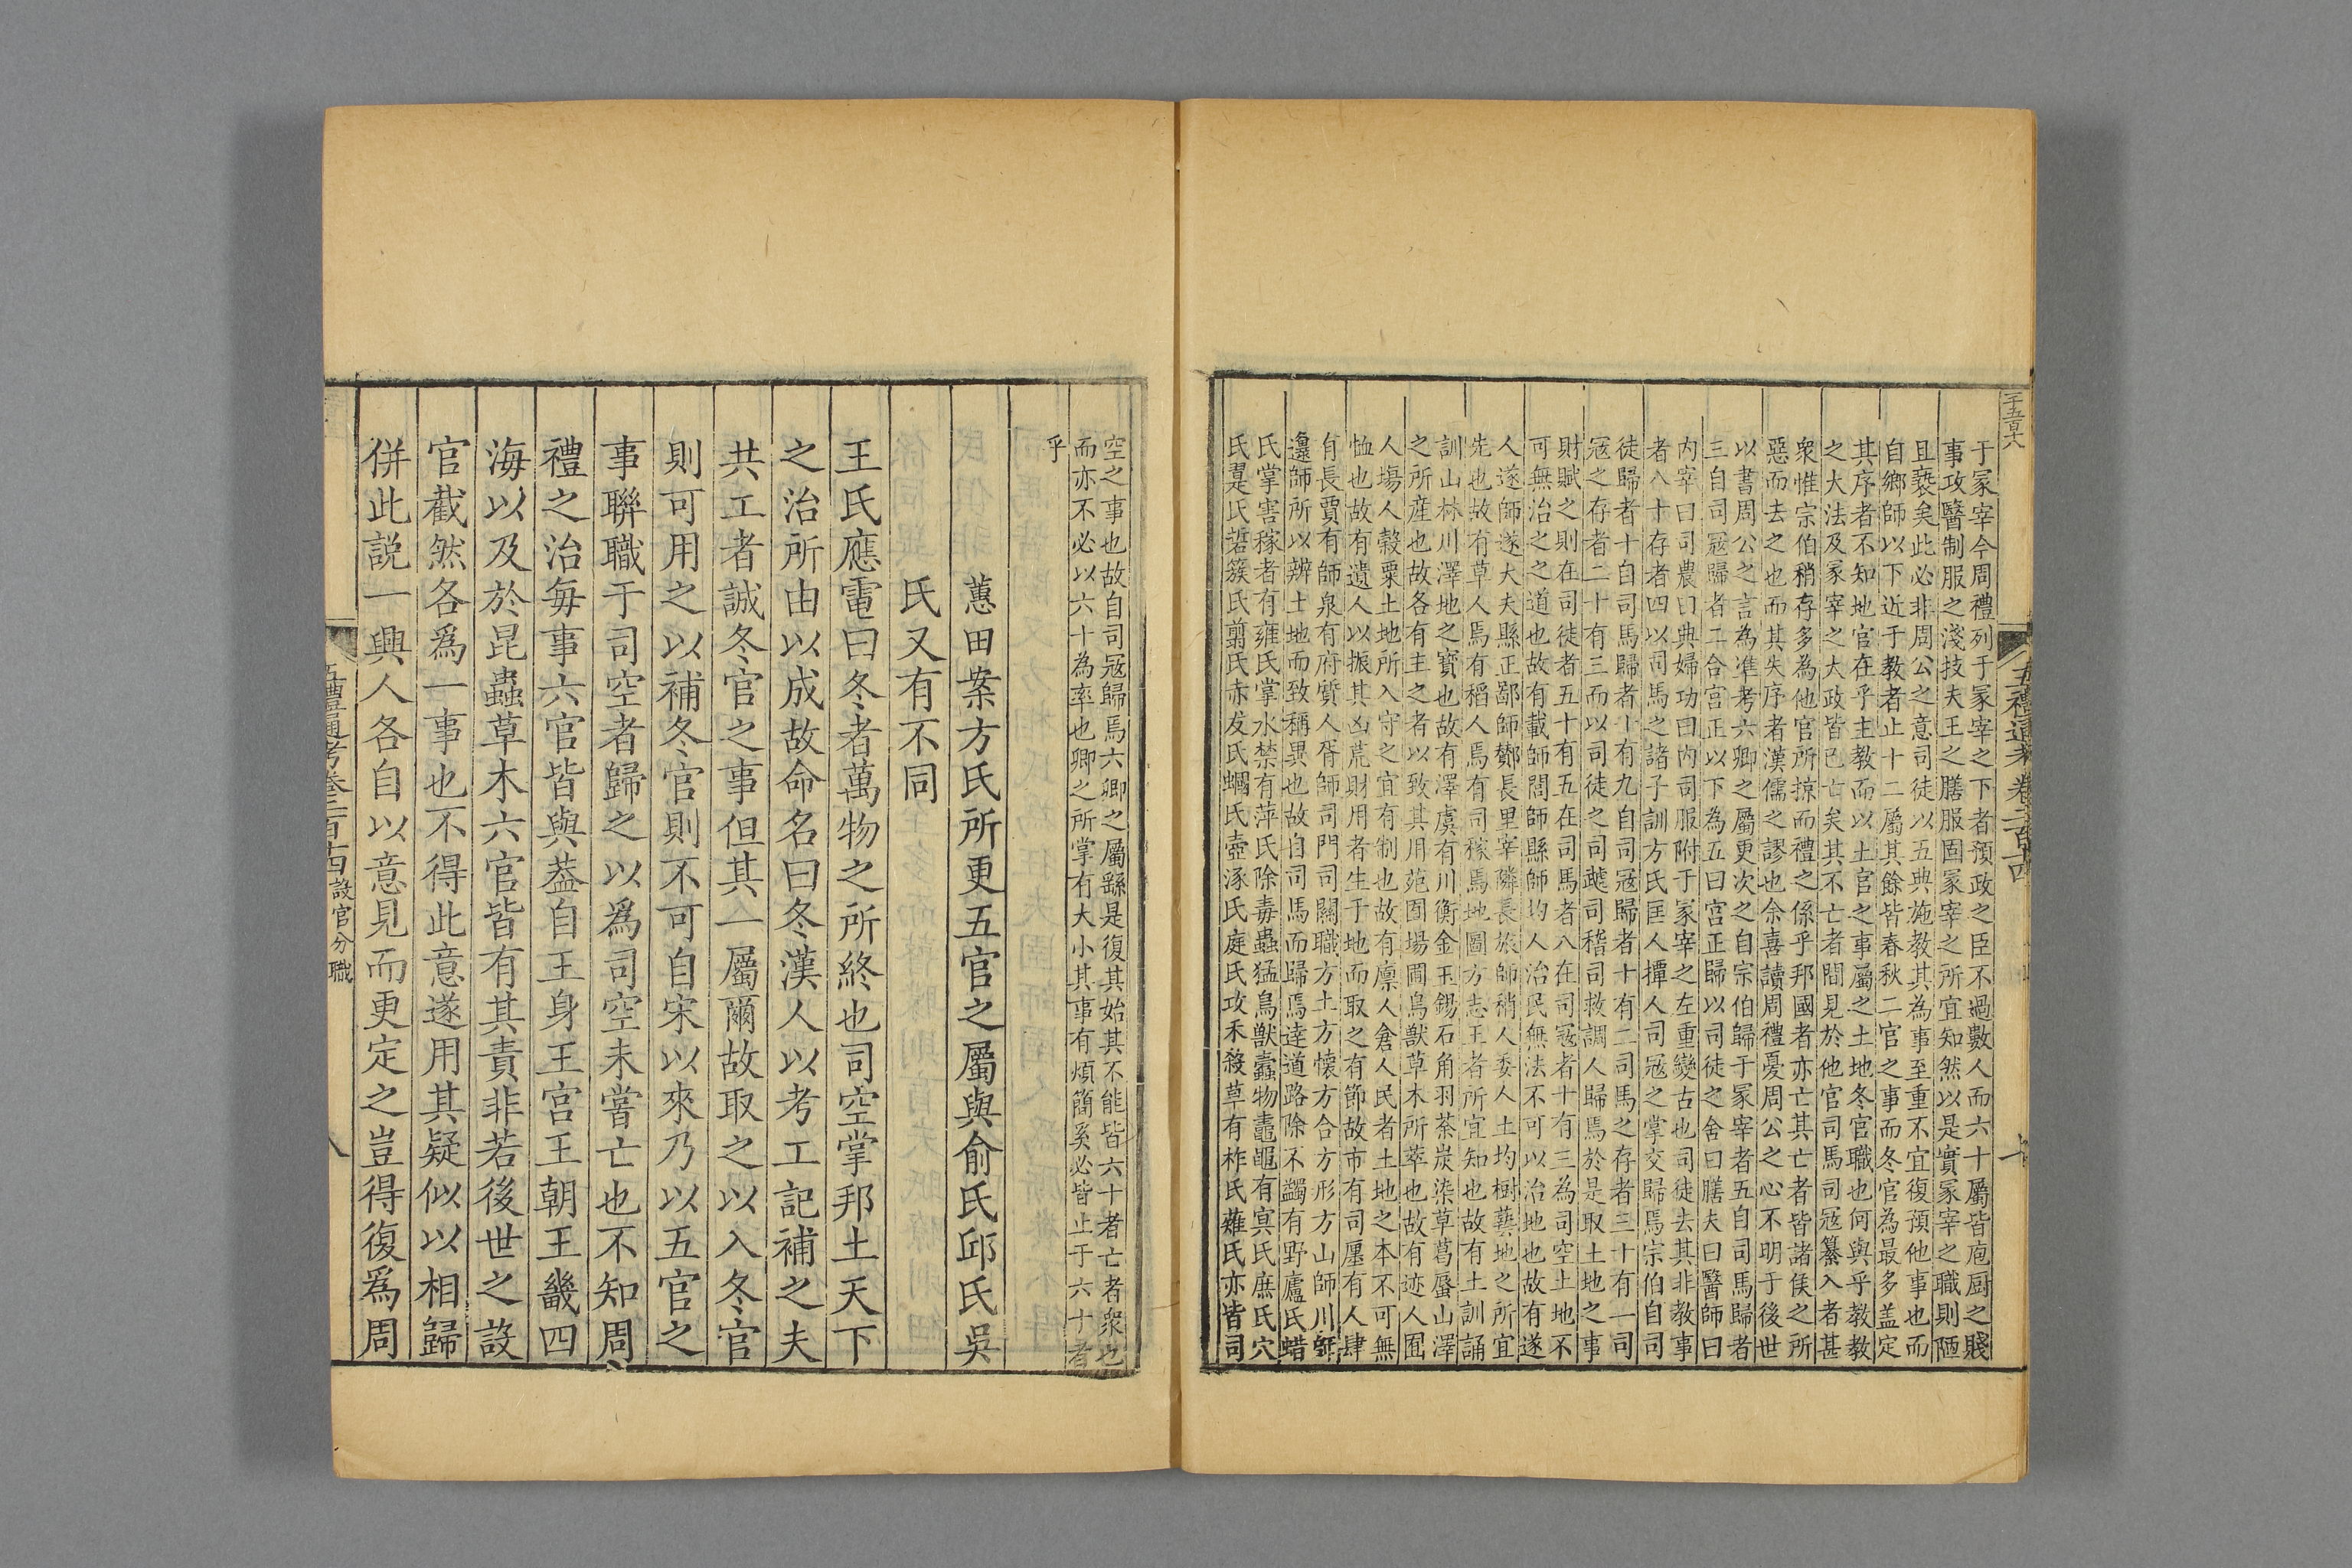 于冢宰今周禮列于冢宰之下者預政之臣不過數人而六十屬皆庖厨之賤
事攻醫制服之淺技夫王之膳服固冢宰之所宜知然以是實冢宰之職則陋
且褻矣此必非周公之意司徒以五典施教其為事至重不宜復預他事也而
自鄉師以下近于教者止十二屬其餘皆春秋二官之事而冬官為最多盖定
其序者不知地官在乎主教而以土官之事屬之土地冬官職也何與乎教教
之大法及冢宰之大政皆已亡矣其不亡者間見於他官司馬司冦纂入者甚
衆惟宗伯稍存多為他官所掠而禮之係乎邦國者亦亡其亡者皆諸侯之所
惡而去之也而其失序者漢儒之謬也余喜讀周禮憂周公之心不明于後世
以書周公之言為凖考六卿之屬更次之自宗伯歸于冢宰者五自司馬歸者
三自司冦歸者二合宫正以下為五曰宫正歸以司徒之舍曰膳夫曰醫師曰
内宰曰司農曰典婦功曰内司服附于冢宰之左重變古也司徒去其非教事
者八十存者四以司馬之諸子訓方氏匡人撢人司冦之掌交歸焉宗伯自司
徒歸者十自司馬歸者十有九自司冦歸者十有二司馬之存者三十有一司
冦之存者二十有三而以司徒之司虣司稽司救調人歸焉於是取土地之事
財賦之則在司徒者五十有五在司馬者八在司冦者十有三為司空土地不
可無治之之道也故有載師閭師縣師均人治民無法不可以治地也故有遂
人遂師遂大夫縣正鄙師酇長里宰隣長旅師稍人委人土均樹蓺地之所宜
先也故有草人焉有稻人焉有司稼焉地圖方志王者所宜知也故有土訓誦
訓山林川澤地之寳也故有澤虞有川衡金玉錫石角羽荼炭染草葛蜃山澤
之所産也故各有主之者以致其用苑囿場圃鳥獸草木所萃也故有迹人囿
人場人榖粟土地所入守之宜有制也故有廪人倉人民者土地之本不可無
恤也故有遺人以振其凶荒財用者生于地而取之有節故市有司廛有人肆
自長賈有師泉有府質人胥師司門司關職方土方懷方合方形方山師川師
邊師所以辨土地而致稱異也故自司馬而歸焉逹道路除不蠲有野廬氏蜡
氏掌害稼者有雍氏掌水禁有萍氏除毒蟲猛鳥獸蠹物鼃黽有冥氏庶氏穴
氏翨氏硩蔟氏翦氏赤犮氏蟈氏壺涿氏庭氏攻禾殺草有柞氏薙氏亦皆司
五禮通考卷二百十四
空之事也故自司冦歸焉六卿之屬繇是復其始其不能皆六十者亡者衆也
而亦不必以六十為率也卿之所掌有大小其事有煩簡奚必皆止于六十者
乎
蕙田案方氏所更五官之屬與俞氏邱氏吳
氏又有不同
王氏應電曰冬者萬物之所終也司空掌邦土天下
之治所由以成故命名曰冬漢人以考工記補之夫
共工者誠冬官之事但其一屬爾故取之以入冬官
則可用之以補冬官則不可自宋以來乃以五官之
事聯職于司空者歸之以爲司空未嘗亡也不知周
禮之治毎事六官皆與葢自王身王宫王朝王畿四
海以及於昆蟲草木六官皆有其責非若後世之設
官截然各爲一事也不得此意遂用其疑似以相歸
併此説一興人各自以意見而更定之豈得復爲周
五禮通考卷二百十四 設官分職 八